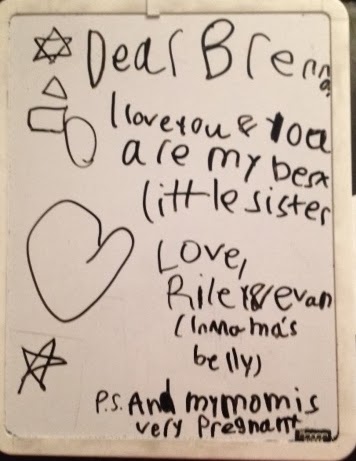 Dear Brenna
I love you & you
are my best
little sister
Love,
Riley & evan
(in mama's
belly)
P.S. And my mom is
very Pregnant